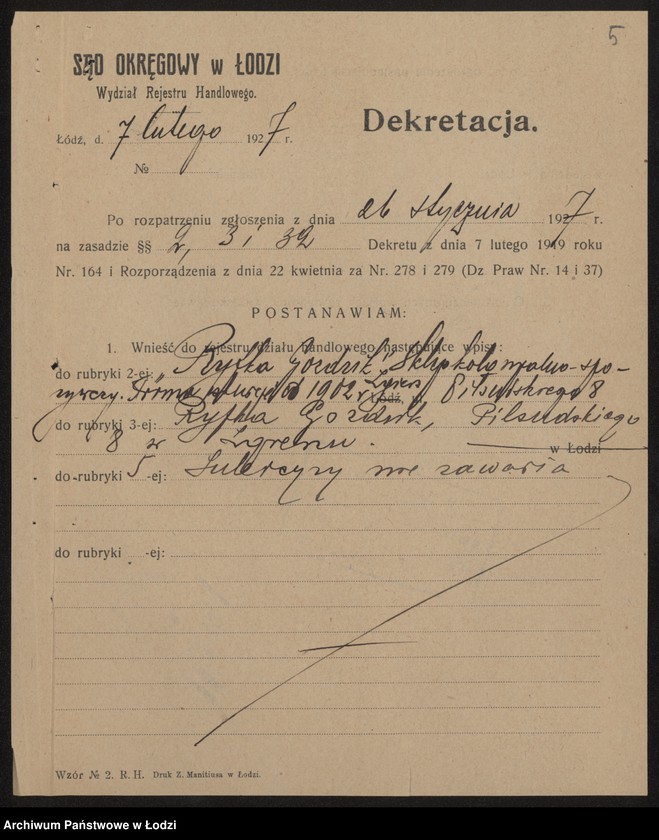 5
SĄD OKRĘGOWY w ŁODZI
Wydział Rejestru Handlowego.
Łódź, d. 7 lutego 1927 r.
Dekretacja.
№
Po rozpatrzeniu zgłoszenia z dnia 26 stycznia 1927 r.
na zasadzie §§ 2, 3 i 32 Dekretu z dnia 7 lutego 1919 roku
Nr. 164 i Rozporządzenia z dnia 22 kwietnia za Nr. 278 i 279 (Dz. Praw Nr. 14 i 37)
POSTANAWIAM:
1. Wnieść do rejestru działu handlowego następujące wpisy:
do rubryki 2-ej: „Ryfka Gozdzik” Sklep kolonjalno-spo-
żywczy. Firma istnieje od 1902 r. Zgierz Łódź, Piłsudskiego 8
do rubryki 3-ej: Ryfka Gozdzik, Piłsudskiego
8 w Zgierzu. w Łodzi
do rubryki 5-ej: Intercyzy nie zawarła
do rubryki -ej:
Wzór № 2. R. H. Druk Z. Manitiusa w Łodzi.
Archiwum Państwowe w Łodzi